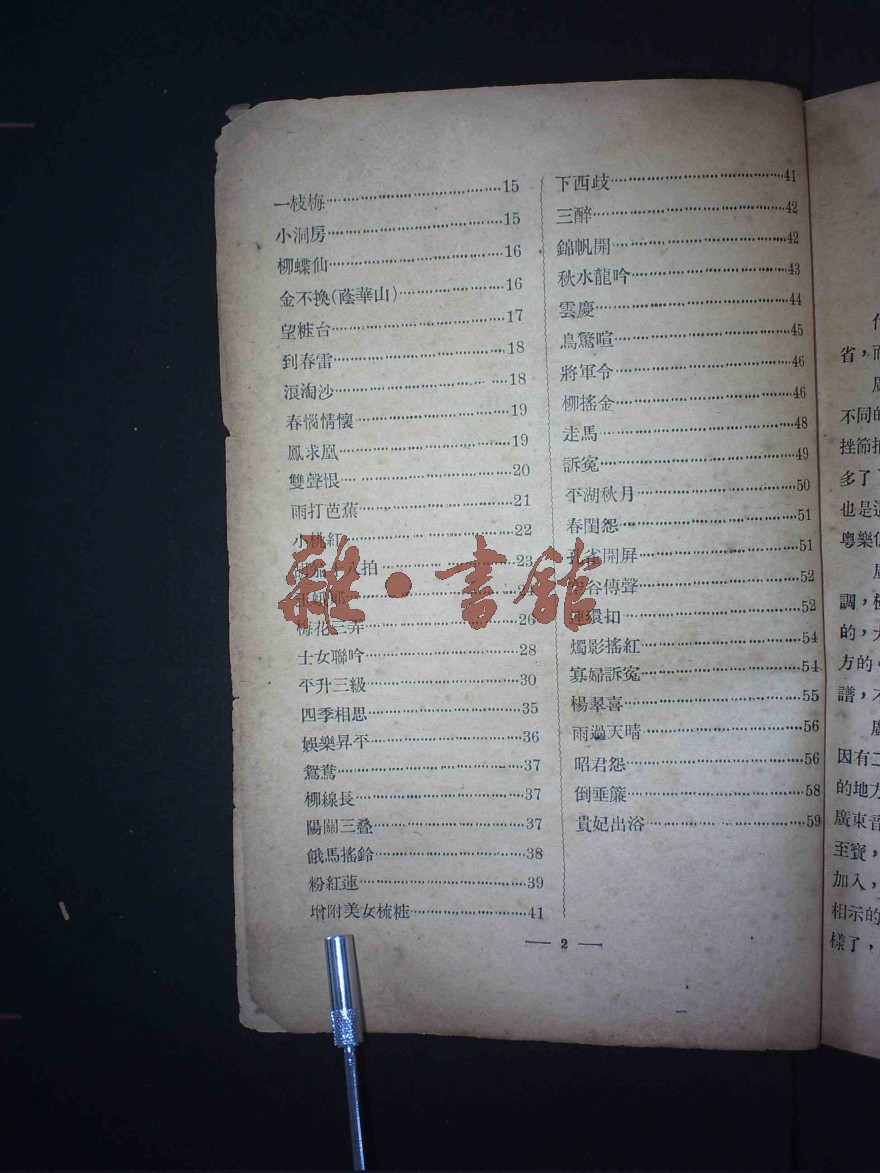 一枝梅 15
小洞房 15
柳蝶仙 16
金不換(蔭華山) 16
望粧台 17
到春雷 18
浪淘沙 18
春惱情懷 19
鳳求凰 19
雙聲恨 20
雨打芭蕉 21
小桃紅 22
胡笳十八拍 23
24
梅花三弄 26
士女聯吟 28
平升三級 30
四季相思 35
娛樂昇平 36
鴛鴦 37
柳線長 37
陽關三叠 37
餓馬搖鈴 38
粉紅蓮 39
增附美女梳粧 41
下西歧 41
三醉 42
錦帆開 42
秋水龍吟 43
雲慶 44
鳥驚喧 45
將軍令 46
柳搖金 46
走馬 48
訴寃 49
平湖秋月 50
春閨怨 51
孔雀開屏 51
空谷傳聲 52
連環扣 52
燭影搖紅 54
寡婦訴寃 54
楊翠喜 55
雨過天晴 56
昭君怨 56
倒垂簾 58
貴妃出浴 59
— 2 —
雜·書館
省，而
不同的
挫節拍
多了
也是這
粵樂
調，
的，大
方的
譜，不
因有二
的地方
廣東音
至寶，
加入，
相示的
樣了，